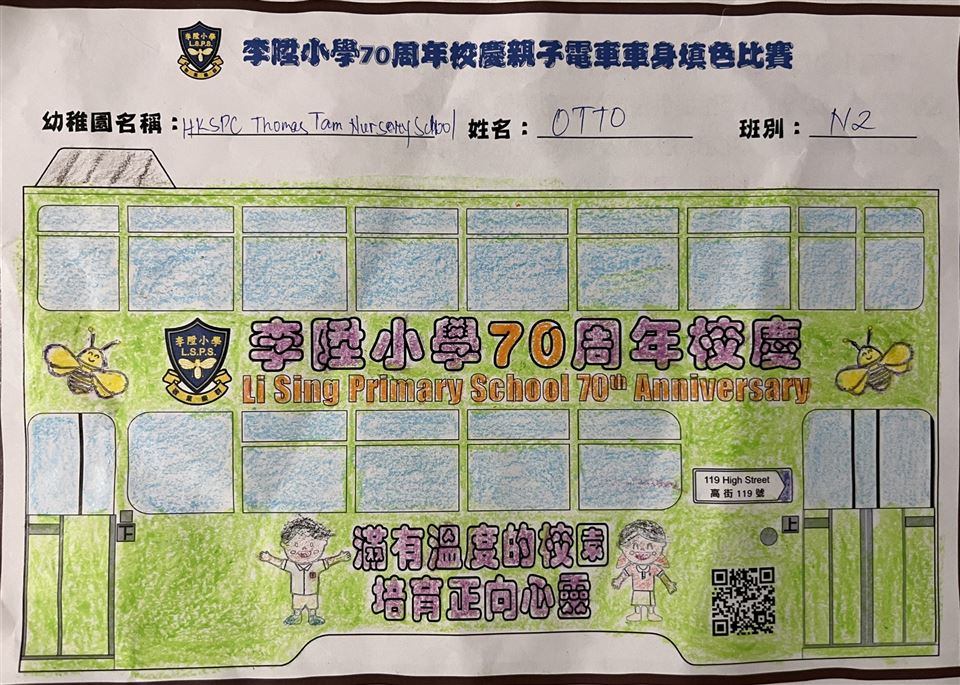 李陞小學
L.S.P.S.
李陞小學70周年校慶親子電車車身填色比賽
幼稚園名稱：HKSPC Thomas Tam Nursery School 姓名：OTTO 班別：N2
李陞小學
L.S.P.S.
李陞小學70周年校慶
Li Sing Primary School 70th Anniversary
119 High Street
高街 119 號
上
上
滿有溫度的校園
培育正向心靈